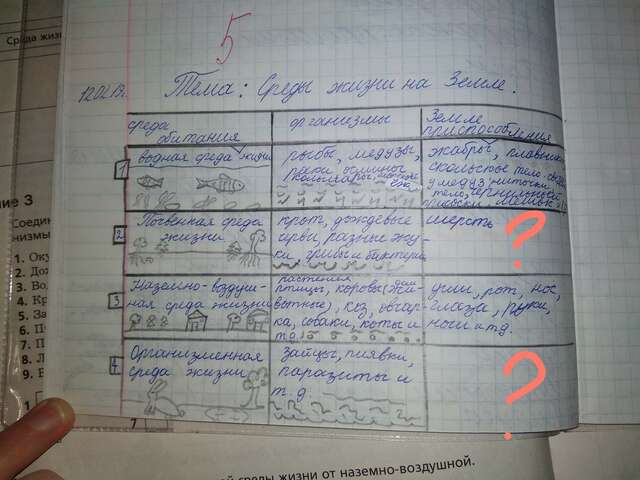 Среда жиз
5
12.02.13.
Тема: Среды жизни на Земле.
среда обитания
организмы
Земле приспособления
1
водная среда жизни
рыбы, медузы,
жабры, плавники
скользкое тело
у медуз
тело
2
Почвенная среда
жизни
крот, дождевые
черви, разные жу-
ки, грибы и бактерии
шерсть
?
3
Наземно-воздуш-
ная среда жизни
растения
птицы, коровы
вотные), коз, овчар-
ка, собаки, коты и
т.д.
уши, рот, нос,
глаза, руки,
ноги и т.д.
4
Организменная
среда жизни
зайцы, пиявки,
паразиты и
т.д.
?
ние 3
Соедин
низмы
1. Оку
2. Дож
3. Во
4. Кр
5. За
6. П
7. П
8. Л
9. Б
1
7
ой среды жизни от наземно-воздушной.